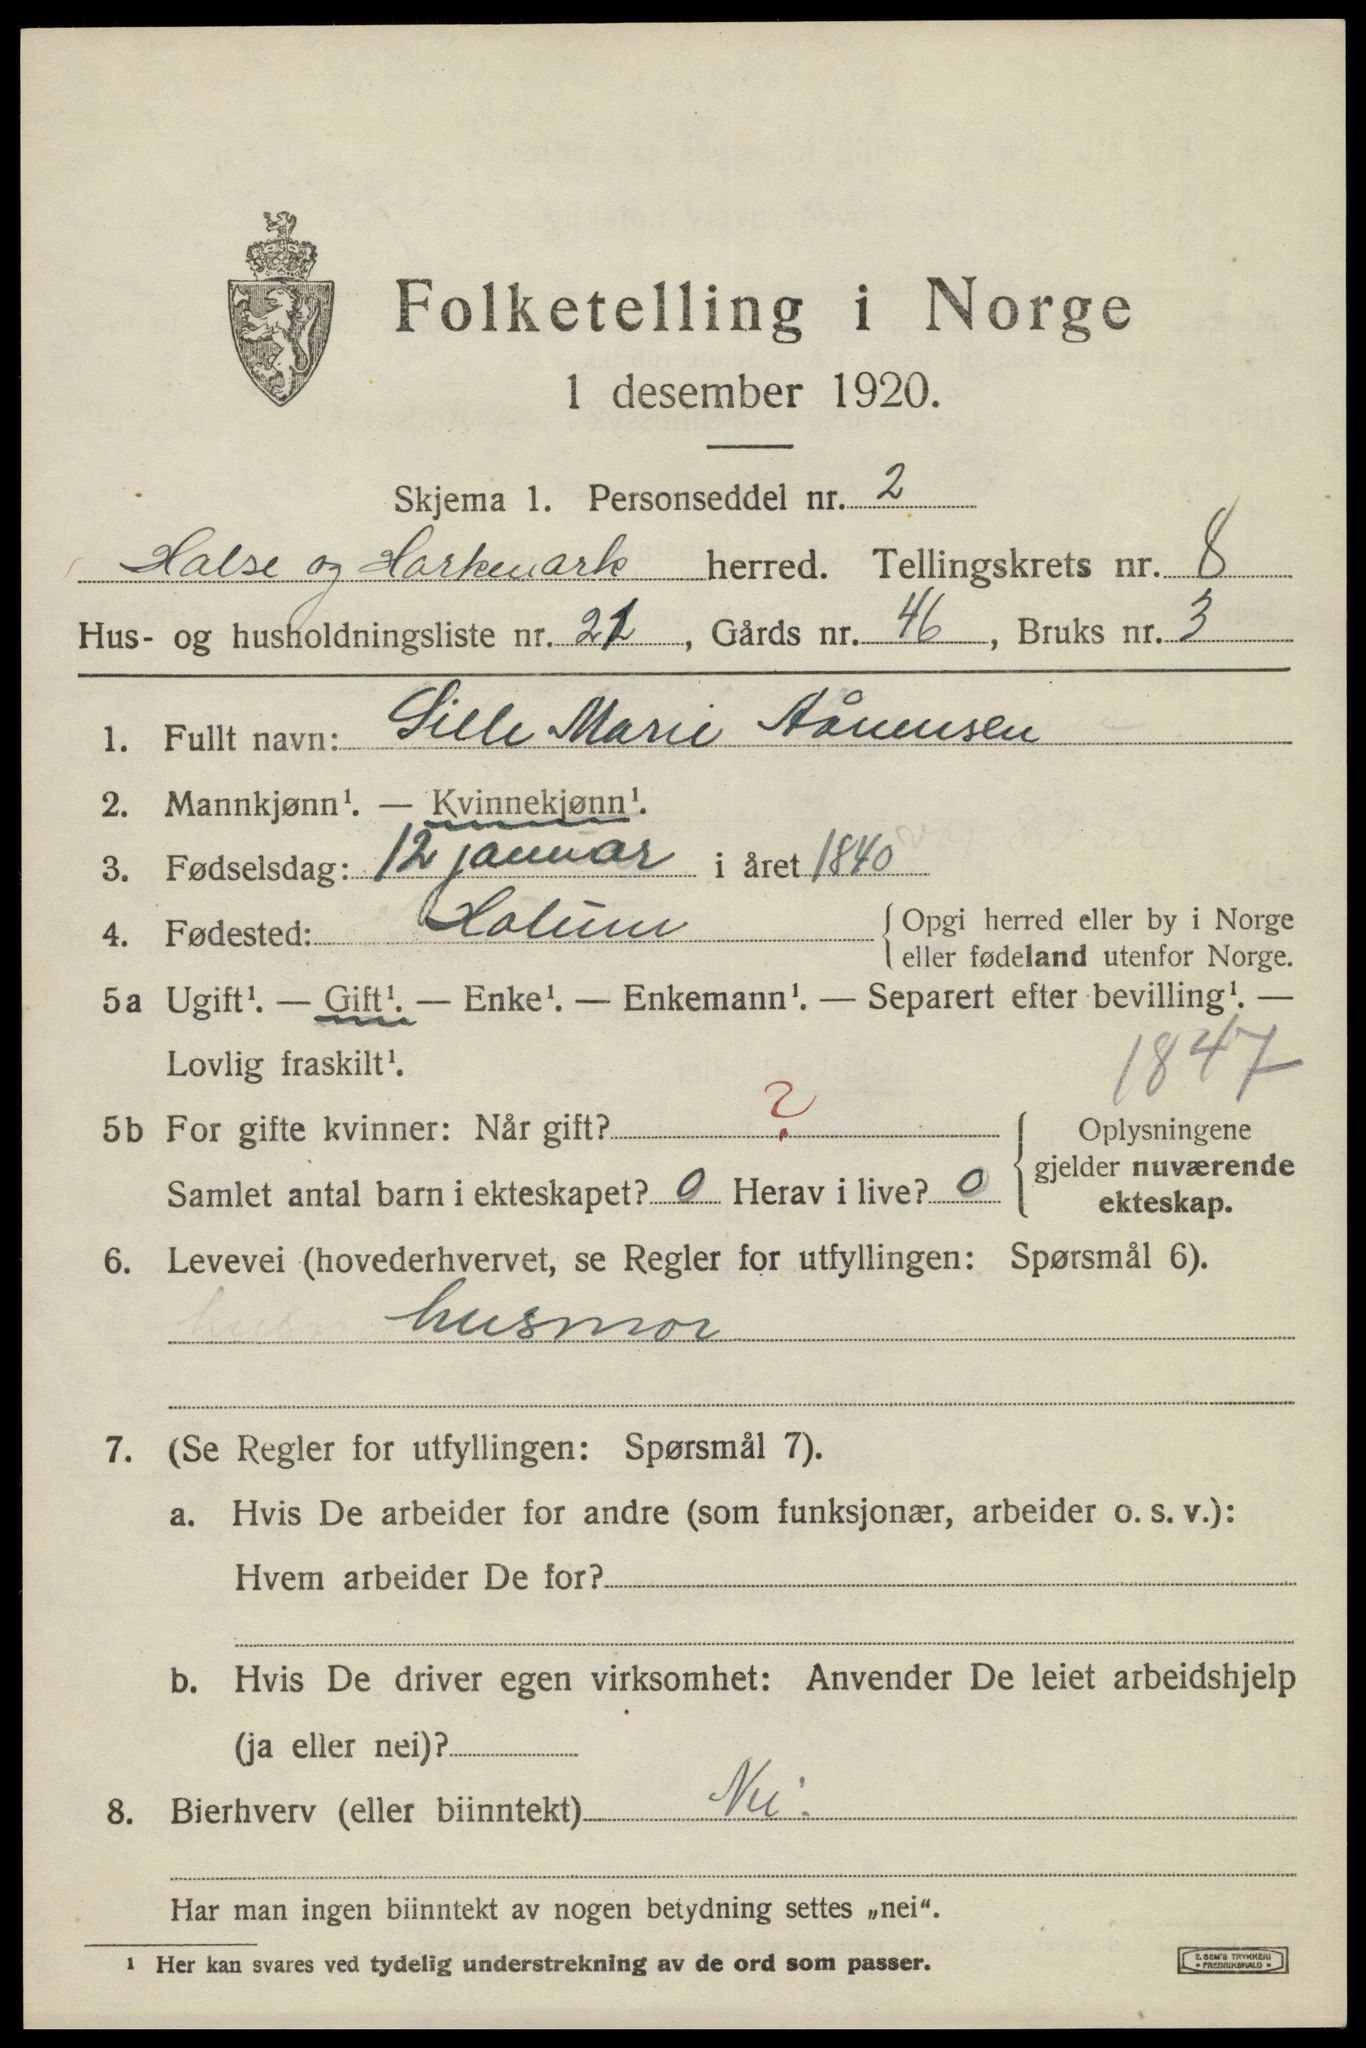 Folketelling i Norge
1 desember 1920.
Skjema 1. Personseddel nr. 2
Halse og Harkmark herred. Tellingskrets nr. 8
Hus- og husholdningsliste nr. 21, Gårds nr. 46, Bruks nr. 3
1. Fullt navn: Sille Marie Aånensen
2. Mannkjønn¹. — Kvinnekjønn¹.
3. Fødselsdag: 12 januar i året 1840
4. Fødested: Holum { Opgi herred eller by i Norge
eller fødeland utenfor Norge.
5a Ugift¹. — Gift¹. — Enke¹. — Enkemann¹. — Separert efter bevilling¹. —
Lovlig fraskilt¹.
1847
5b For gifte kvinner: Når gift? ? { Oplysningene
gjelder nuværende
Samlet antal barn i ekteskapet? 0 Herav i live? 0
ekteskap.
6. Levevei (hovederhvervet, se Regler for utfyllingen: Spørsmål 6).
husmor
7. (Se Regler for utfyllingen: Spørsmål 7).
a. Hvis De arbeider for andre (som funksjonær, arbeider o. s. v.):
Hvem arbeider De for?
b. Hvis De driver egen virksomhet: Anvender De leiet arbeidshjelp
(ja eller nei)?
8. Bierhverv (eller biinntekt) Nei.
Har man ingen biinntekt av nogen betydning settes „nei“.
¹ Her kan svares ved tydelig understrekning av de ord som passer.
E. SEM'S TRYKKERI
• FREDRIKSHALD •